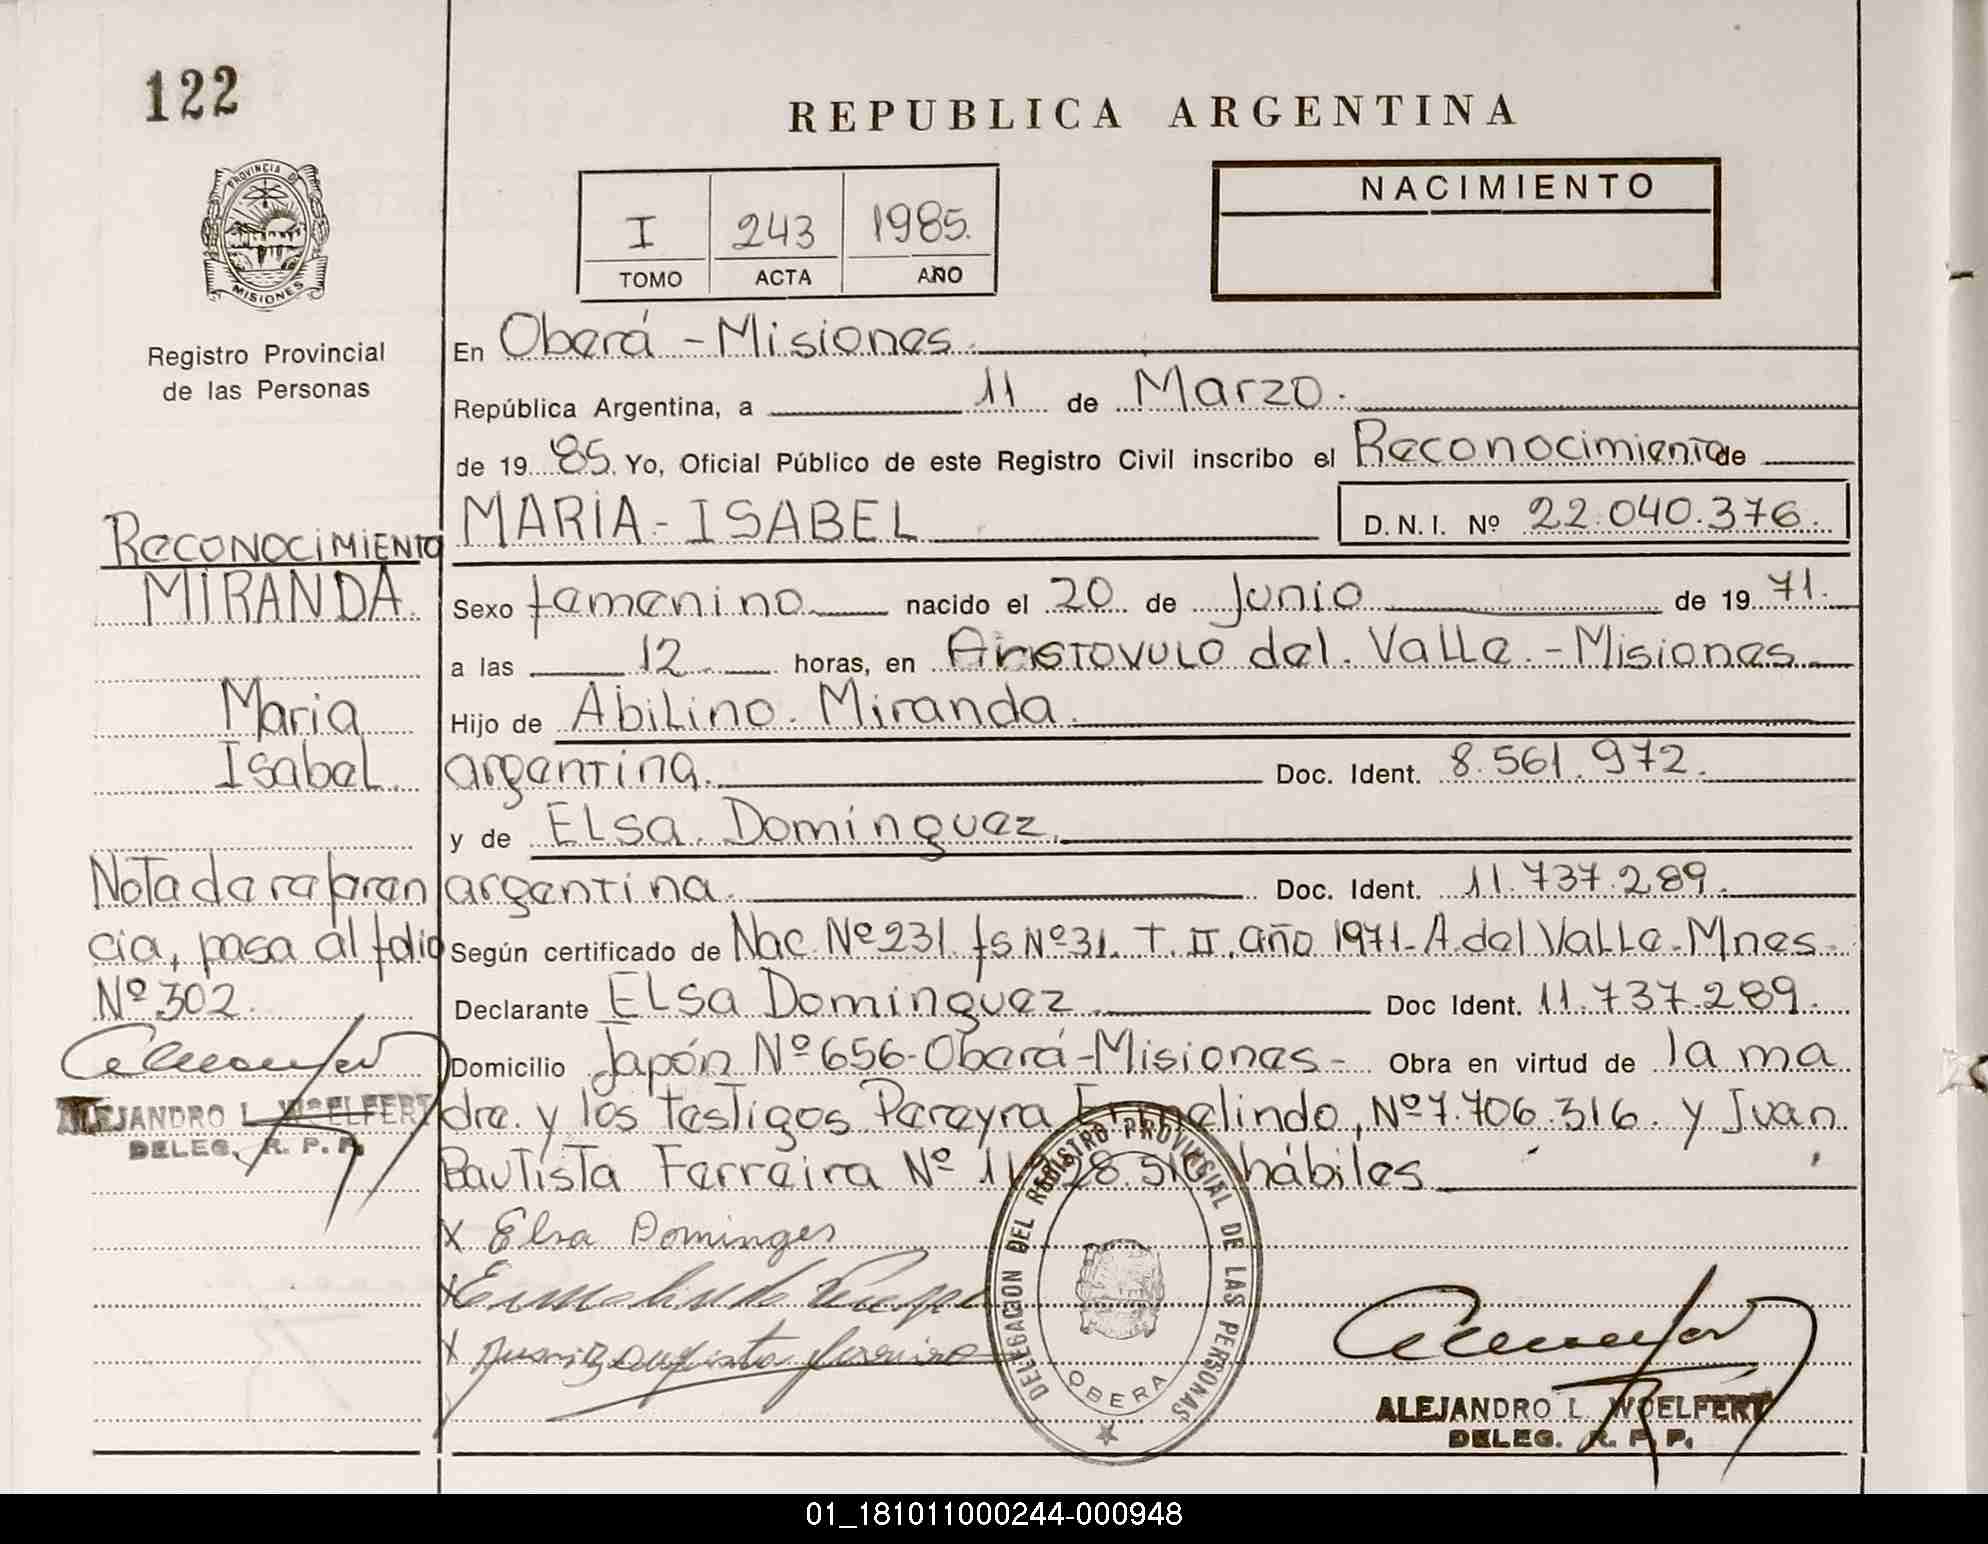 122
REPUBLICA ARGENTINA
PROVINCIA DE
MISIONES
I 243 1985.
TOMO ACTA AÑO
NACIMIENTO
Registro Provincial
de las Personas
En Oberá - Misiones.
República Argentina, a 11 de Marzo.
de 19 85. Yo, Oficial Público de este Registro Civil inscribo el Reconocimiento de
MARIA - ISABEL D.N.I. Nº 22.040.376.
RECONOCIMIENTO
MIRANDA.
Maria
Isabel.
Sexo femenino nacido el 20 de Junio de 19 71.
a las 12 horas, en Aristovulo del Valle. - Misiones
Hijo de Abilino Miranda.
argentina. Doc. Ident. 8.561.972.
y de Elsa Dominguez.
argentina. Doc. Ident. 11.737.289.
Según certificado de Nac Nº 231 fs Nº 31. T. II. año 1971 - A. del Valle - Mnes
Declarante Elsa Dominguez Doc Ident. 11.737.289.
Domicilio Japón Nº 656 - Oberá - Misiones - Obra en virtud de la ma
dre y los testigos Pereyra Ermelindo, Nº 7.706.316. y Juan
Bautista Ferreira Nº hábiles
Nota de referen
cia, pasa al folio
Nº 302.
ALEJANDRO L. WOELFERT
DELEG. R. P. P.
X Elsa Dominges
X Ermelindo
X Juan Bautista Ferreira
DELEGACION DEL REGISTRO PROVINCIAL DE LAS PERSONAS
OBERA
ALEJANDRO L. WOELFERT
DELEG. R. P. P.
01_181011000244-000948